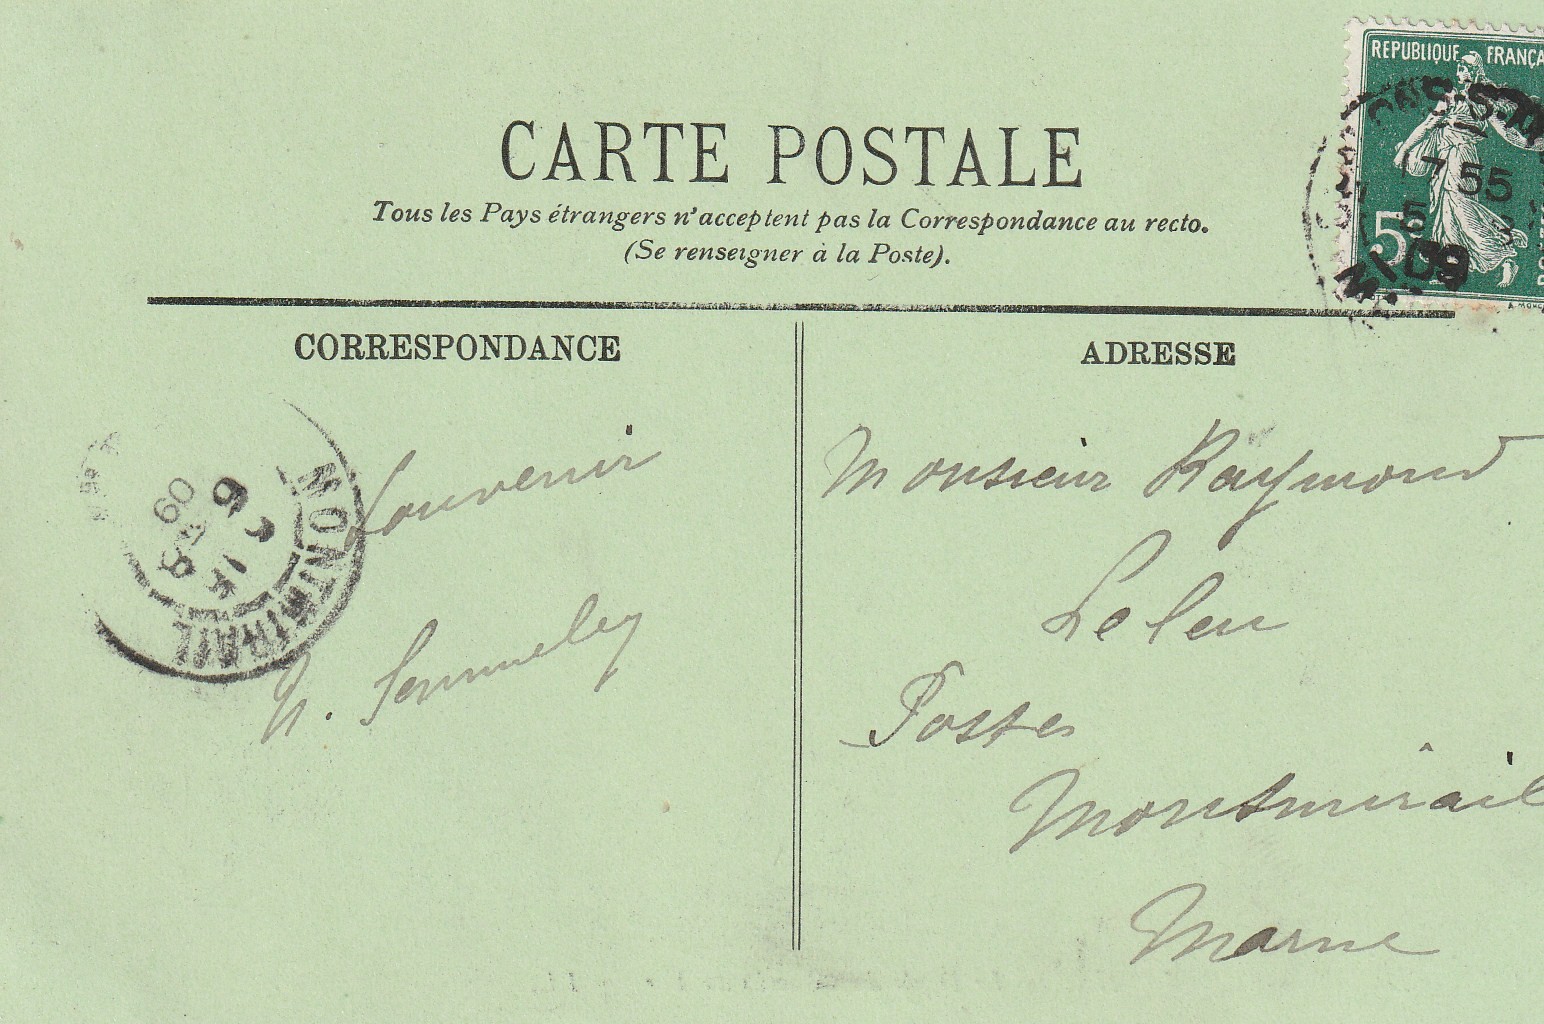 REPUBLIQUE FRANÇA
CARTE POSTALE
Tous les Pays étrangers n'acceptent pas la Correspondance au recto.
(Se renseigner à la Poste).
17 55
5
09
CORRESPONDANCE
ADRESSE
MONTMIRAIL
09
Souvenir
Monsieur Raymond
Leleu
Postes
Montmirail
Marne